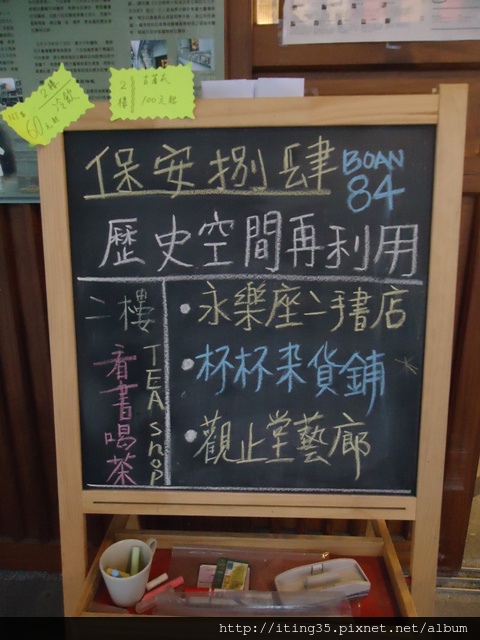 2樓
冷飲
NT$ 60元起
2樓
100元起
保安捌肆
BOAN
84
歷史空間再利用
二樓
看書喝茶
TEA Shop
·永樂座二手書店
·杯杯杂貨舖
·觀止堂藝廊
http://iting35.pixnet.net/album